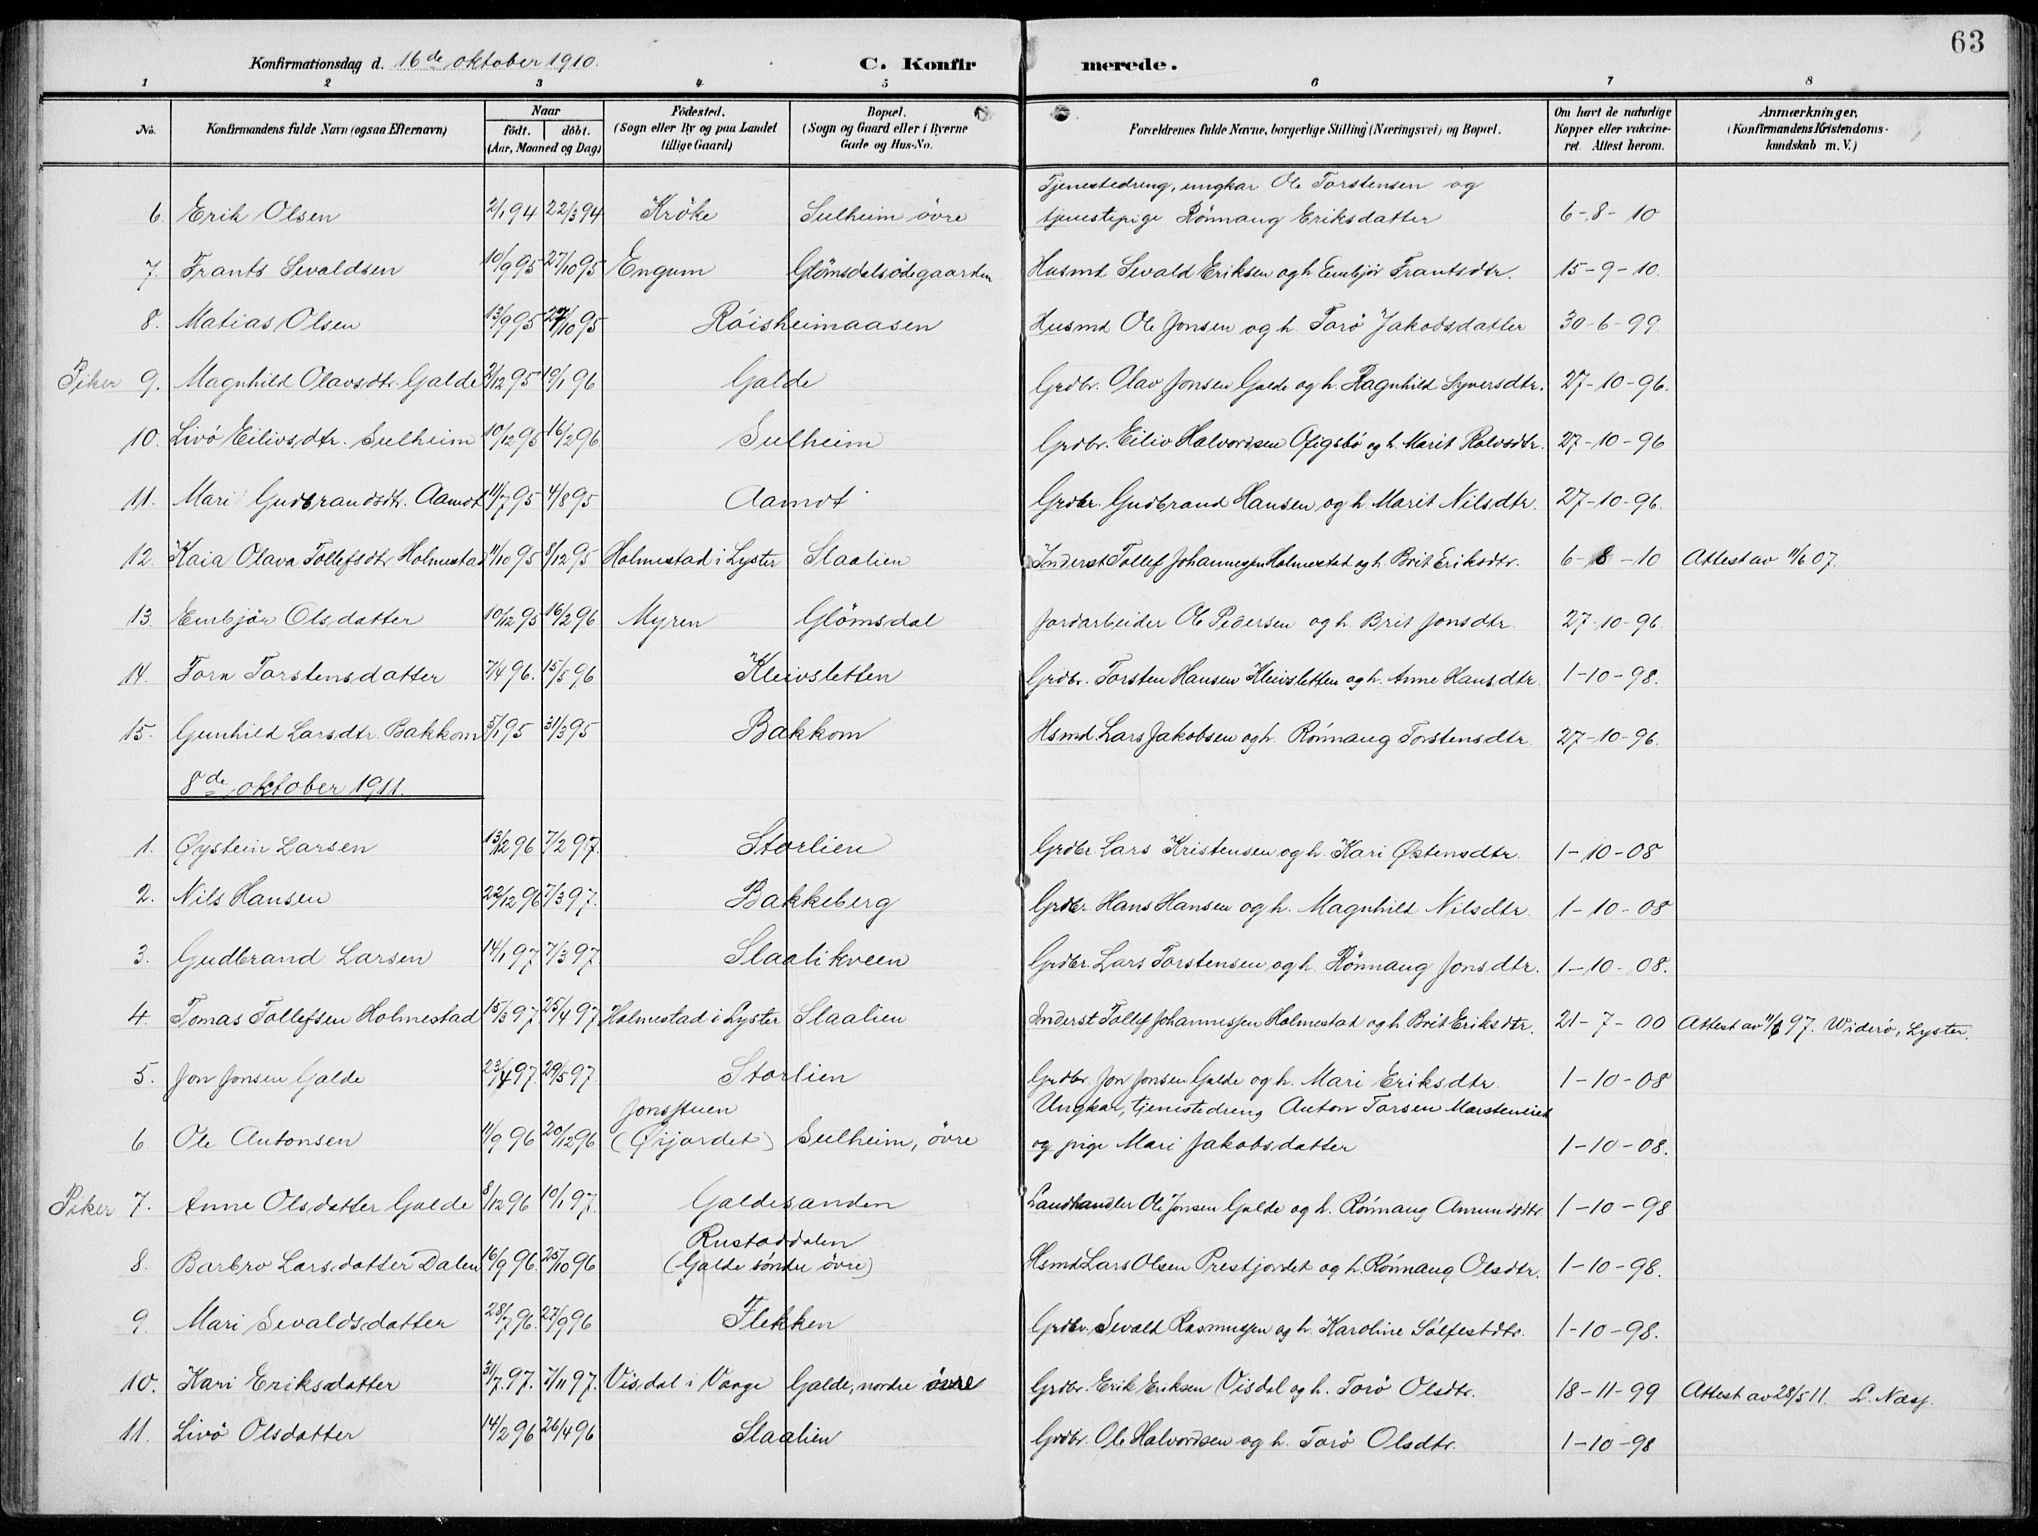 63
Konfirmationsdag d. 16de oktober 1910. C. Konfirmerede.
1 2 3 4 5 6 7 8
No. Konfirmandens fulde Navn (ogsaa Efternavn) Naar født. døbt. (Aar, Maaned og Dag) Fødested. (Sogn eller By og paa Landet tillige Gaard) Bopæl. (Sogn og Gaard eller i Byerne Gade og Hus-No. Forældrenes fulde Navne, borgerlige Stilling (Næringsvei) og Bopæl. Om havt de naturlige Kopper eller vakcineret. Attest herom. Anmærkninger. (Konfirmandens Kristendomskundskab m. V.)
Tjenestedreng, ungkar Ole Torstensen og
6. Erik Olsen 2/1 94 22/3 94 Kröke Sulheim övre tjenestepige Rønnaug Eriksdatter 6-8-10
7. Frants Sevaldsen 10/9 95 27/10 95 Engum Glömsdalsødegaarden Husmd Sevald Eriksen og h. Embjör Frantsdtr. 15-9-10.
8. Matias Olsen 13/9 95 27/10 95 Röisheimaasen Husmd Ole Jonsen og h. Torö Jakobsdatter 30-6-99.
Piker 9. Magnhild Olavsdtr. Galde 2/12 95 19/1 96 Galde Grdbr. Olav Jonsen Galde og h. Ragnhild Syversdtr. 27-10-96.
10. Livö Eilivsdtr. Sulheim 10/12 95 16/2 96 Sulheim Grdbr. Eiliv Halvordsen Ofigsbö og h. Marit Rolvsdtr. 27-10-96
11. Mari Gudbrandsdtr. Aamot 11/7 95 4/8 95 Aamot Grdbr. Gudbrand Hansen og h. Marit Nilsdtr. 27-10-96.
12. Kaia Olava Tollefsdtr Holmestad 11/10 95 8/12 95 Holmestad i Lyster Slaalien Inderst Tollef Johannessen Holmestad og h. Brit Eriksdtr. 6-8-10 Attest av 11/6 07.
13. Embjör Olsdatter 10/12 95 16/2 96 Myren Glömsdal Jordarbeider Ole Pedersen og h. Brit Jonsdtr. 27-10-96.
14. Torn Torstensdatter 7/4 96. 15/5 96 Kleivsletten Grdbr. Torsten Hansen Kleivsletten og h. Anne Hansdtr. 1-10-98.
15. Gunhild Larsdtr. Bakkom 5/1 95 31/3 95 Bakkom Hsmd. Lars Jakobsen og h. Rönnaug Torstensdtr. 27-10-96.
8de oktober 1911.
1. Øystein Larsen 13/12 96 7/2 97. Storlien Grdbr. Lars Kristensen og h. Kari Østensdtr. 1-10-08
2. Nils Hansen 22/12 96 7/3 97. Bakkeberg Grdbr. Hans Hansen og h. Magnhild Nilsdtr. 1-10-08
3. Gudbrand Larsen 14/1 97. 7/3 97. Slaalikveen Grdbr. Lars Torstensen og h. Rönnaug Jonsdtr. 1-10-08.
4. Tomas Tollefsen Holmestad 15/3 97 25/4 97 Holmestad i Lyster Slaalien Inderst Tollef Johannessen Holmestad og h. Brit Eriksdtr. 21-7-00 Attest av 11/6 97. Widerö, Lyster.
5. Jon Jonsen Galde 23/4 97 29/5 97 Storlien Grdbr. Jon Jonsen Galde og h. Mari Eriksdtr. 1-10-08
Jonsstuen Ungkar, tjenestedreng Anton Torsen Marsteneiet
6. Ole Antonsen 11/9 96 20/12 96 (Öijordet) Sulheim, övre og pige Mari Jakobsdatter 1-10-08.
Piker 7. Anne Olsdatter Galde 8/12 96 10/1 97. Galdesanden Landhandler Ole Jonsen Galde og h. Rönnaug Amundsdtr. 1-10-98
Rustaddalen
8. Barbro Larsdatter Dalen 16/9 96. 25/10 96 (Galde söndre övre) Hsmd Lars Olsen Prestjordet og h. Rönnaug Olsdtr. 1-10-98.
9. Mari Sevaldsdatter 28/7 96. 27/9 96 Flekken Grdbr. Sevald Rasmussen og h. Karoline Sölfestdtr. 1-10-98.
10. Kari Eriksdatter 31/7 97. 7/11 97. Visdal i Vaage Galde, nordre övre Grdbr. Erik Eriksen Visdal og h. Torö Olsdtr. 18-11-99 Attest av 28/5 11. L. Næsj.
11. Livö Olsdatter 14/2 96 26/4 96 Slaalien Grdbr. Ole Halvordsen og h. Torö Olsdtr. 1-10-98